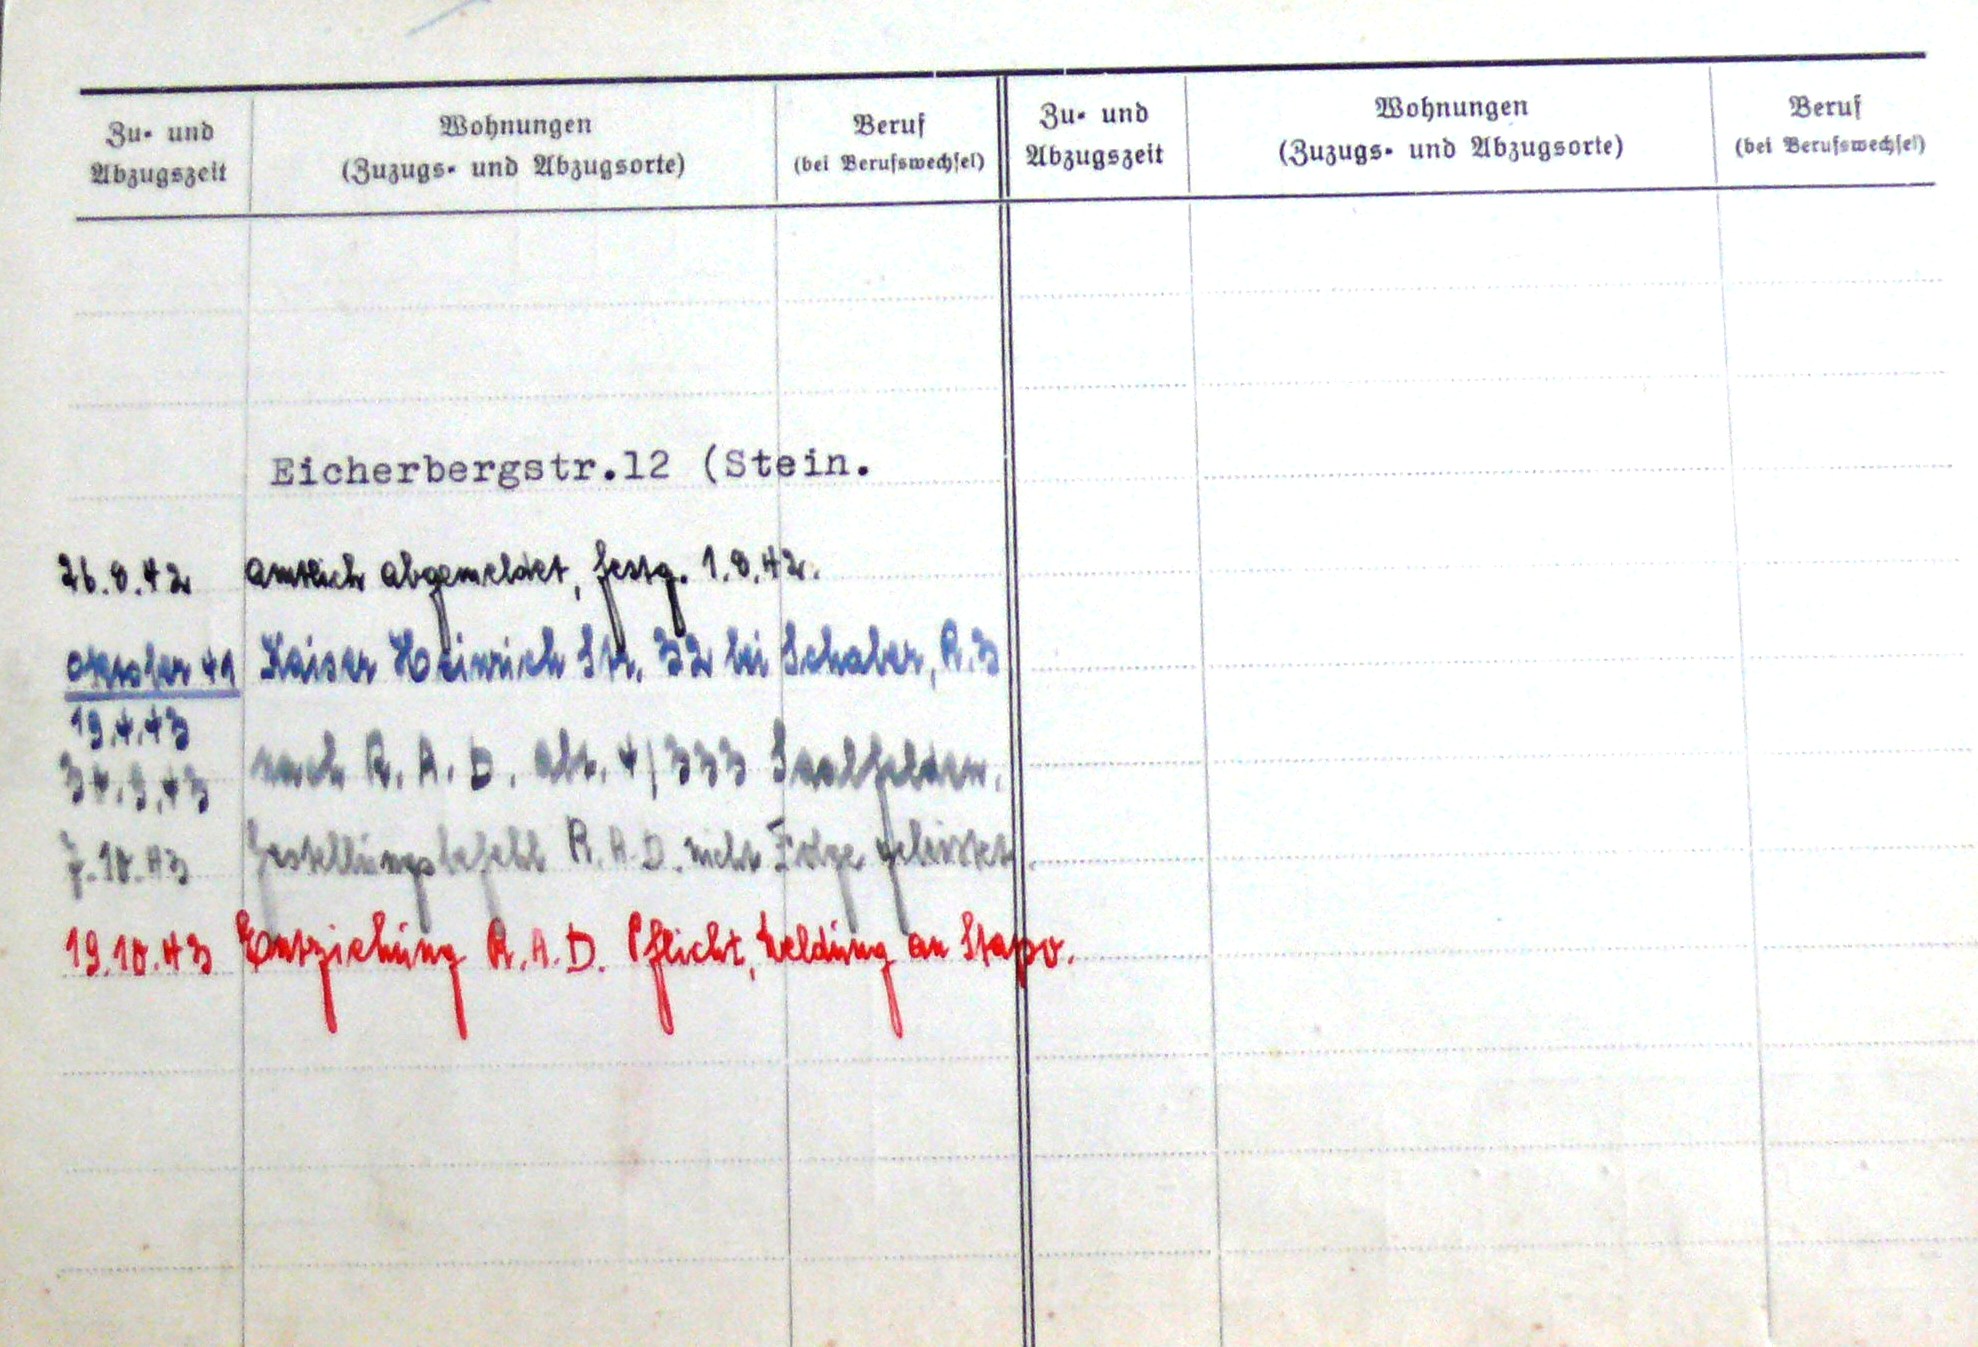 Zu- und Abzugszeit
Wohnungen
(Zuzugs- und Abzugsorte)
Beruf
(bei Berufswechsel)
Zu- und Abzugszeit
Wohnungen
(Zuzugs- und Abzugsorte)
Beruf
(bei Berufswechsel)
Eicherbergstr.12 (Stein.
26.8.42 amtlich abgemeldet, festg. 1.8.42.
Oktober 41 Kaiser Heinrich Str. 32 bei Schaber, R.3
19.4.43
nach R.A.D. abt. 4/333 Saalfelden.
7.10.43 Gestellungsbefehl R.A.D. nicht Folge geleistet.
19.10.43 Entziehung R.A.D. Pflicht, Meldung an Stapo.